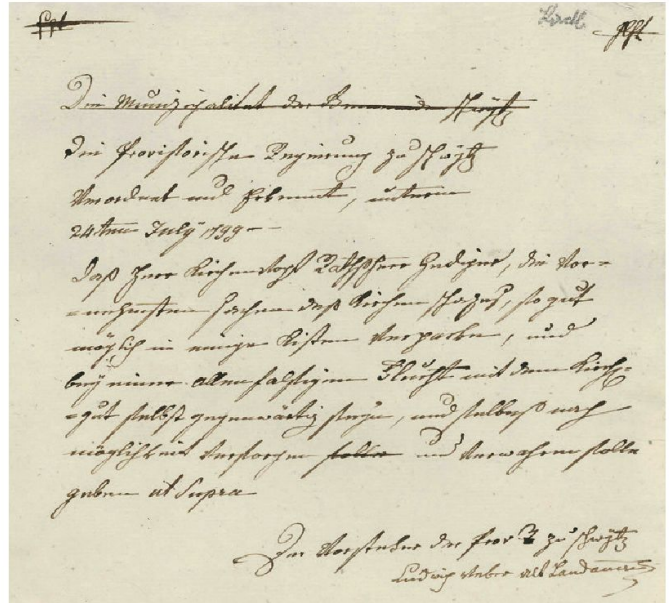 Die Munizipalitet der Gemeinde Schwytz
Die Provisorische Regierung zu Schwytz
Verordnet und Erkennt, unterm
24ten July 1799 —
daß Herr Kirchenvogt Rathsherr Hediger, die Vor=
=nehmsten Sachen deß Kirchen schazes, so gut
möglich in einige Kisten Verpacke, und
bey einer allenfahlsigen Flucht mit dem Kirch=
=gut selbst gegenwärtig seye, und selbes nach
möglichkeit Versorgen solle und Verwahren solle
geben ut Supra
Der Vorsteher der Prov: R zu Schwytz
Ludwig Weber alt Landamm